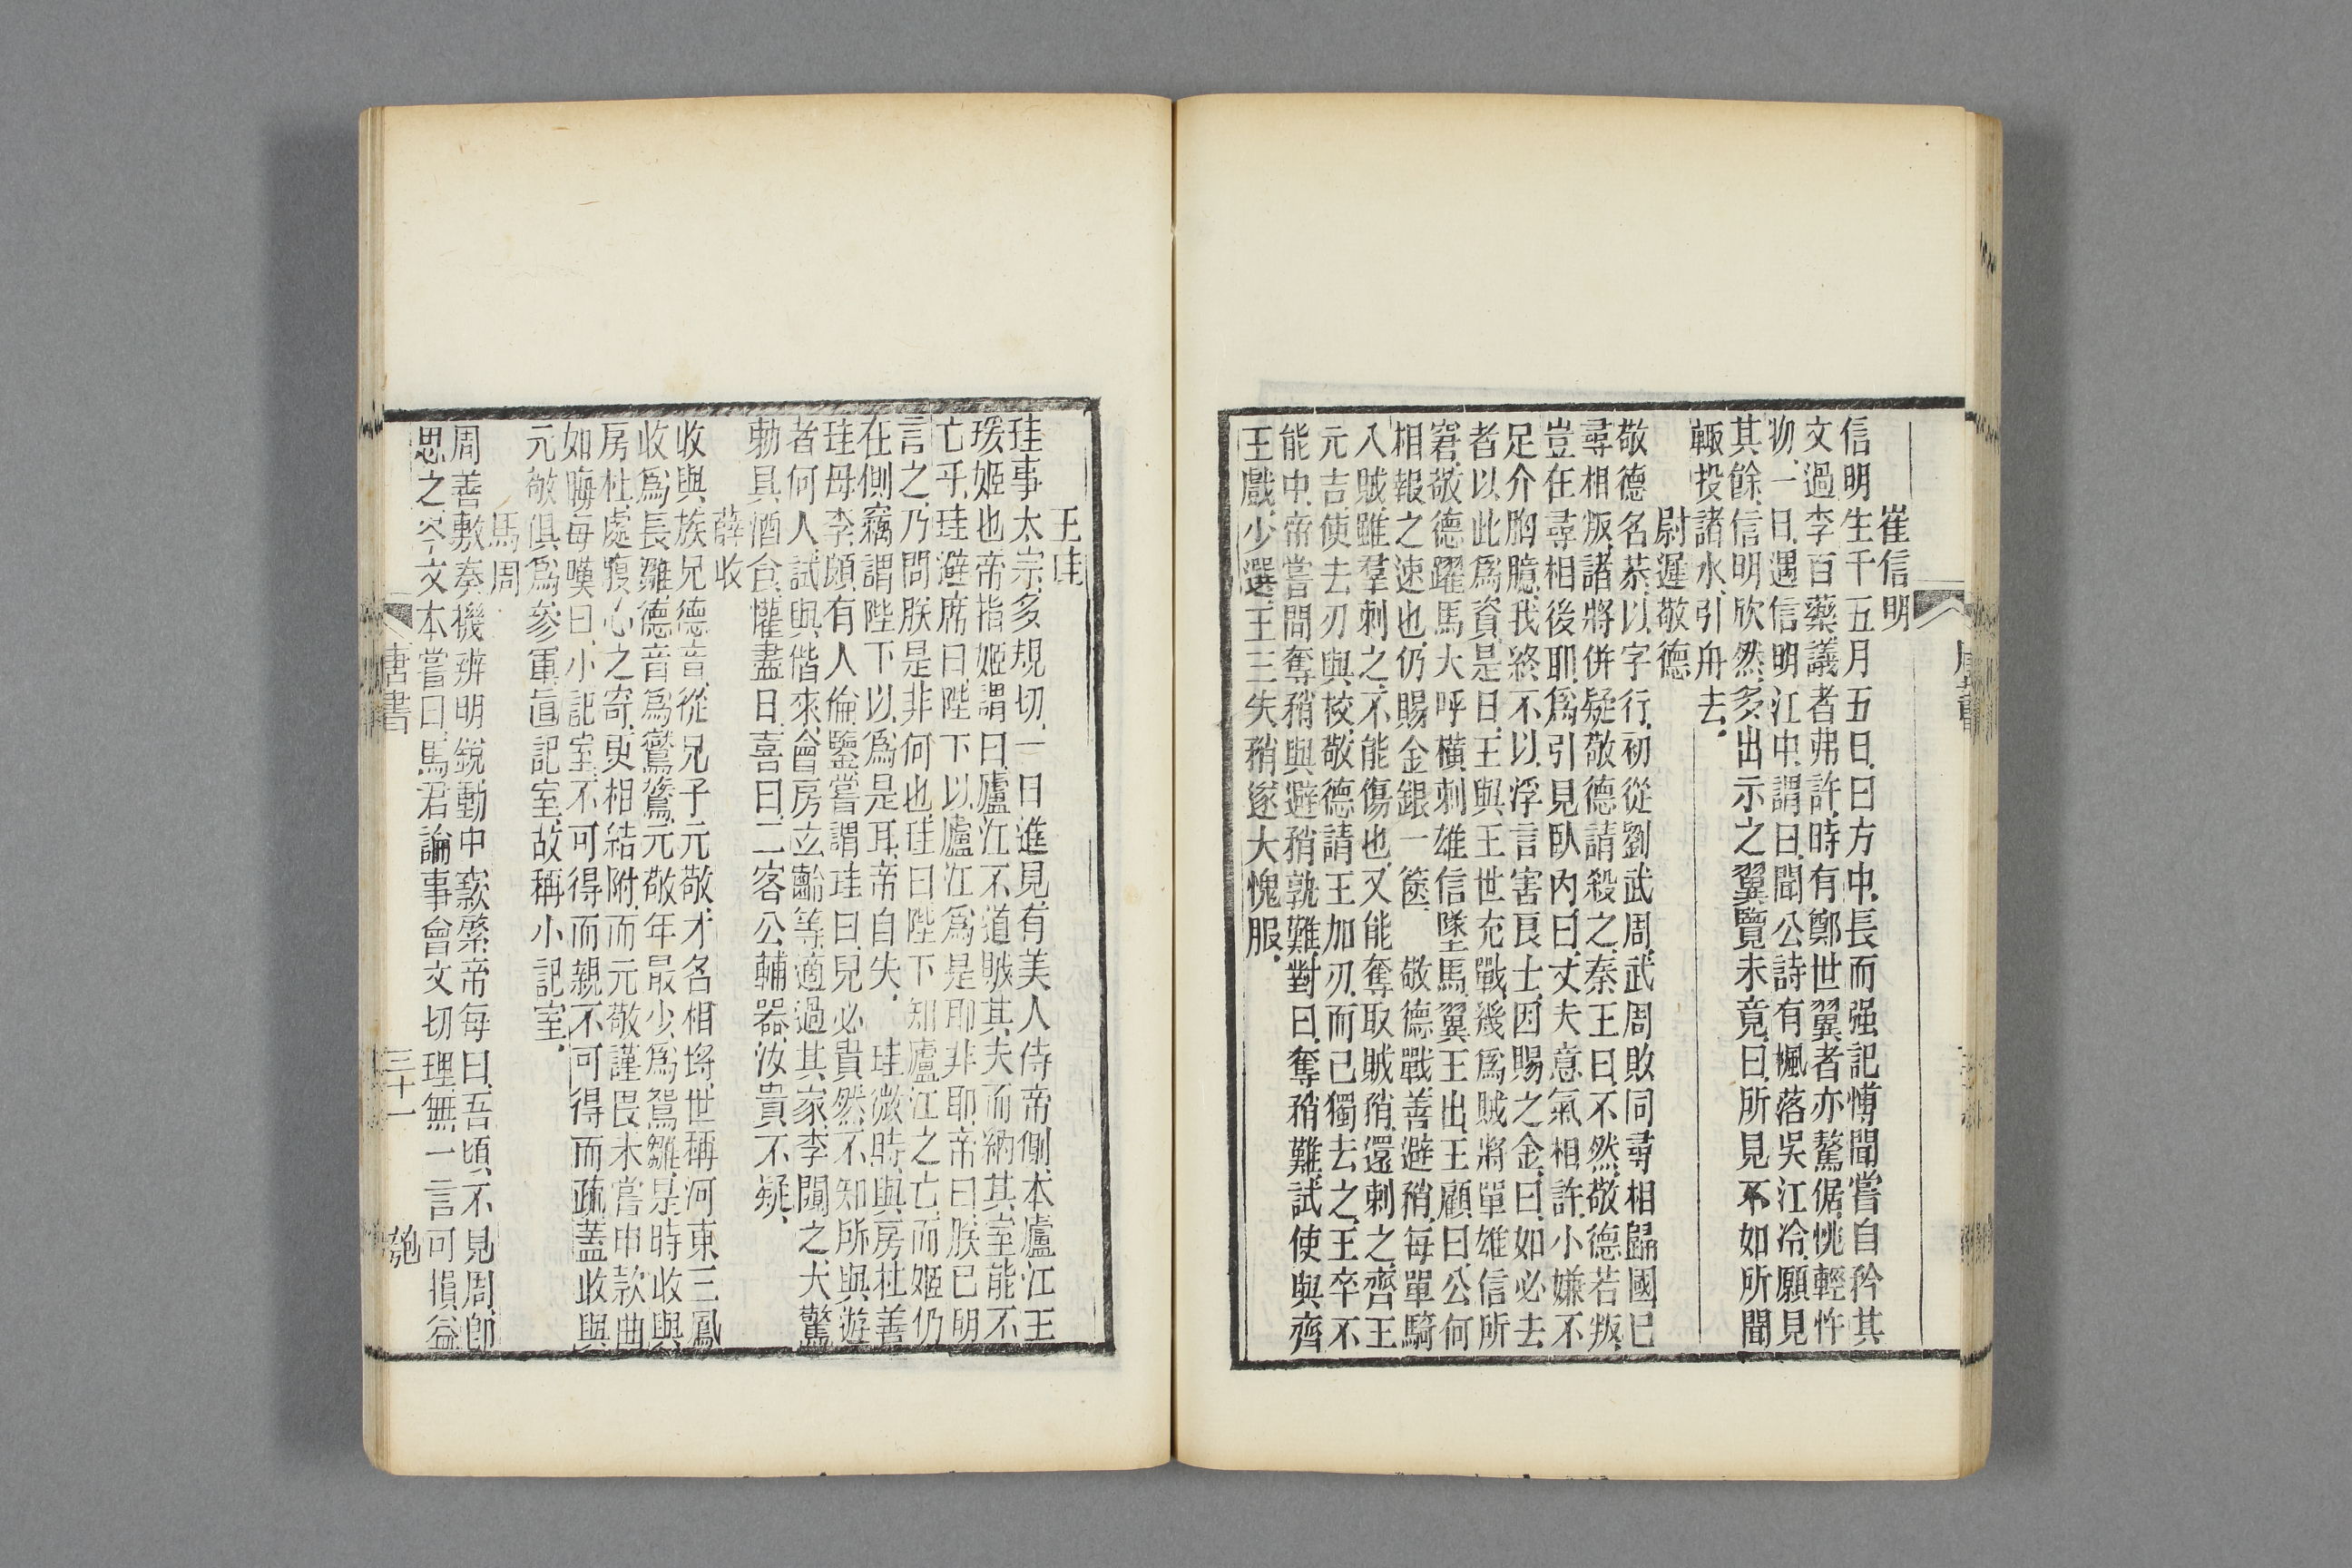 崔信明
信明生干五月五日日方中長而强記愽聞嘗自矜其
文過李百藥議者弗許時有鄭世翼者亦驁倨恌輕忤
物一日遇信明江中謂曰聞公詩有楓落吳江冷願見
其餘信明欣然多出示之翼覽未竟曰所見不如所聞
輙投諸水引舟去
尉遲敬德
敬德名恭以字行初從劉武周武周敗同尋相歸國已
尋相叛諸將併疑敬德請殺之秦王曰不然敬德若叛
豈在尋相後耶爲引見臥內曰丈夫意氣相許小嫌不
足介胸臆我終不以浮言害良士因賜之金曰如必去
者以此爲資是日王與王世充戰幾爲賊將單雄信所
窘敬德躍馬大呼橫刺雄信墜馬翼王出王顧曰公何
相報之速也仍賜金銀一篋 敬德戰善避矟每單騎
入賊雖羣刺之不能傷也又能奪取賊矟還刺之齊王
元吉使去刃與校敬德請王加刃而已獨去之王卒不
能中帝嘗問奪矟與避矟孰難對曰奪矟難試使與齊
王戲少選王三失矟遂大愧服
王珪
珪事太宗多規切一日進見有美人侍帝側本廬江王
瑗姬也帝指姬謂曰廬江不道賊其夫而納其室能不
亡乎珪避席曰陛下以廬江爲是耶非耶帝曰朕已明
言之乃問朕是非何也珪曰陛下知廬江之亡而姬仍
在側竊謂陛下以爲是耳帝自失 珪微時與房杜善
珪母李頗有人倫鑒嘗謂珪曰兒必貴然不知所與遊
者何人試與偕來會房玄齡等適過其家李闚之大驚
勅具酒食懽盡日喜曰二客公輔器汝貴不疑
薛收
收與族兄德音從兄子元敬才名相埒世稱河東三鳳
收爲長雛德音爲鸑鷟元敬年最少爲鴛雛是時收與
房杜處腹心之寄更相結附而元敬謹畏未嘗申款曲
如晦每嘆曰小記室不可得而親不可得而疏蓋收與
元敬俱爲參軍直記室故稱小記室
馬周
周善敷奏機辨明銳動中窾綮帝每曰吾頃不見周卽
思之岑文本嘗曰馬君論事會文切理無一言可損益
唐書
三十一